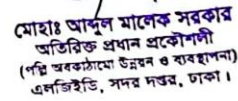 মোঃ আব্দুল মালেক সরকার
অতিরিক্ত প্রধান প্রকৌশলী
(পল্লি অবকাঠামো উন্নয়ন ও ব্যবস্থাপনা)
এলজিইডি, সদর দপ্তর, ঢাকা।